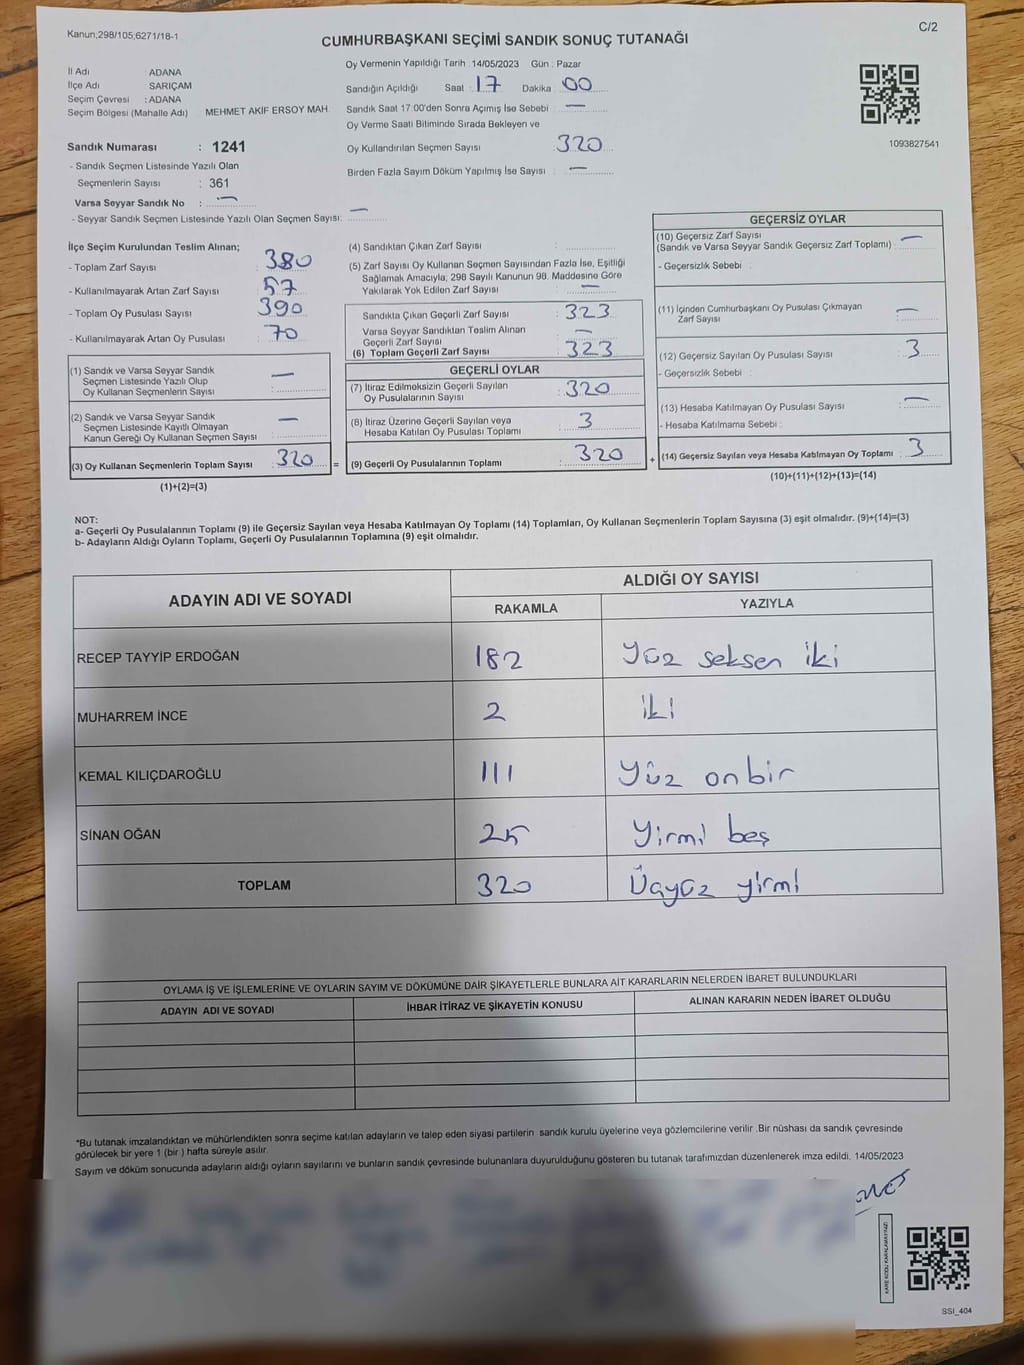 Kanun;298/105;6271/18-1
C/2
CUMHURBAŞKANI SEÇİMİ SANDIK SONUÇ TUTANAĞI
İl Adı : ADANA
İlçe Adı : SARIÇAM
Seçim Çevresi : ADANA
Seçim Bölgesi (Mahalle Adı) MEHMET AKİF ERSOY MAH.
Sandık Numarası : 1241
- Sandık Seçmen Listesinde Yazılı Olan
Seçmenlerin Sayısı : 361
Varsa Seyyar Sandık No : —
- Seyyar Sandık Seçmen Listesinde Yazılı Olan Seçmen Sayısı: —
Oy Vermenin Yapıldığı Tarih : 14/05/2023 Gün : Pazar
Sandığın Açıldığı Saat : 17 Dakika 00
Sandık Saat 17:00'den Sonra Açımış İse Sebebi : —
Oy Verme Saati Bitiminde Sırada Bekleyen ve
Oy Kullandırılan Seçmen Sayısı : 320
Birden Fazla Sayım Döküm Yapılmış İse Sayısı : —
1093827541
İlçe Seçim Kurulundan Teslim Alınan;
- Toplam Zarf Sayısı : 380
- Kullanılmayarak Artan Zarf Sayısı : 57
- Toplam Oy Pusulası Sayısı : 390
- Kullanılmayarak Artan Oy Pusulası : 70
(1) Sandık ve Varsa Seyyar Sandık
Seçmen Listesinde Yazılı Olup
Oy Kullanan Seçmenlerin Sayısı : —
(2) Sandık ve Varsa Seyyar Sandık
Seçmen Listesinde Kayıtlı Olmayan
Kanun Gereği Oy Kullanan Seçmen Sayısı : —
(3) Oy Kullanan Seçmenlerin Toplam Sayısı : 320 =
(1)+(2)=(3)
(4) Sandıktan Çıkan Zarf Sayısı :
(5) Zarf Sayısı Oy Kullanan Seçmen Sayısından Fazla İse, Eşitliği
Sağlamak Amacıyla, 298 Sayılı Kanunun 98. Maddesine Göre
Yakılarak Yok Edilen Zarf Sayısı : —
Sandıkta Çıkan Geçerli Zarf Sayısı : 323
Varsa Seyyar Sandıktan Teslim Alınan
Geçerli Zarf Sayısı : —
(6) Toplam Geçerli Zarf Sayısı : 323
GEÇERLİ OYLAR
(7) İtiraz Edilmoksizin Geçerli Sayılan
Oy Pusulalarının Sayısı : 320
(8) İtiraz Üzerine Geçerli Sayılan veya
Hesaba Katılan Oy Pusulası Toplamı : 3
(9) Geçerli Oy Pusulalarının Toplamı : 320 +
GEÇERSİZ OYLAR
(10) Geçersiz Zarf Sayısı : —
(Sandık ve Varsa Seyyar Sandık Geçersiz Zarf Toplamı)
- Geçersizlik Sebebi :
(11) İçinden Cumhurbaşkanı Oy Pusulası Çıkmayan
Zarf Sayısı : —
(12) Geçersiz Sayılan Oy Pusulası Sayısı : 3
- Geçersizlik Sebebi :
(13) Hesaba Katılmayan Oy Pusulası Sayısı : —
- Hesaba Katılmama Sebebi :
(14) Geçersiz Sayılan veya Hesaba Katılmayan Oy Toplamı : 3
(10)+(11)+(12)+(13)=(14)
NOT:
a- Geçerli Oy Pusulalarının Toplamı (9) ile Geçersiz Sayılan veya Hesaba Katılmayan Oy Toplamı (14) Toplamları, Oy Kullanan Seçmenlerin Toplam Sayısına (3) eşit olmalıdır. (9)+(14)=(3)
b- Adayların Aldığı Oyların Toplamı, Geçerli Oy Pusulalarının Toplamına (9) eşit olmalıdır.
ADAYIN ADI VE SOYADI
ALDIĞI OY SAYISI
RAKAMLA YAZIYLA
RECEP TAYYİP ERDOĞAN 182 Yüz seksen iki
MUHARREM İNCE 2 iki
KEMAL KILIÇDAROĞLU 111 Yüz on bir
SİNAN OĞAN 25 Yirmi beş
TOPLAM 320 Üçyüz yirmi
OYLAMA İŞ VE İŞLEMLERİNE VE OYLARIN SAYIM VE DÖKÜMÜNE DAİR ŞİKAYETLERLE BUNLARA AİT KARARLARIN NELERDEN İBARET BULUNDUKLARI
ADAYIN ADI VE SOYADI İHBAR İTİRAZ VE ŞİKAYETİN KONUSU ALINAN KARARIN NEDEN İBARET OLDUĞU
*Bu tutanak imzalandıktan ve mühürlendikten sonra seçime katılan adayların ve talep eden siyasi partilerin sandık kurulu üyelerine veya gözlemcilerine verilir .Bir nüshası da sandık çevresinde
görülecek bir yere 1 (bir ) hafta süreyle asılır.
Sayım ve döküm sonucunda adayların aldığı oyların sayılarını ve bunların sandık çevresinde bulunanlara duyurulduğunu gösteren bu tutanak tarafımızdan düzenlenerek imza edildi. 14/05/2023
SSI_404